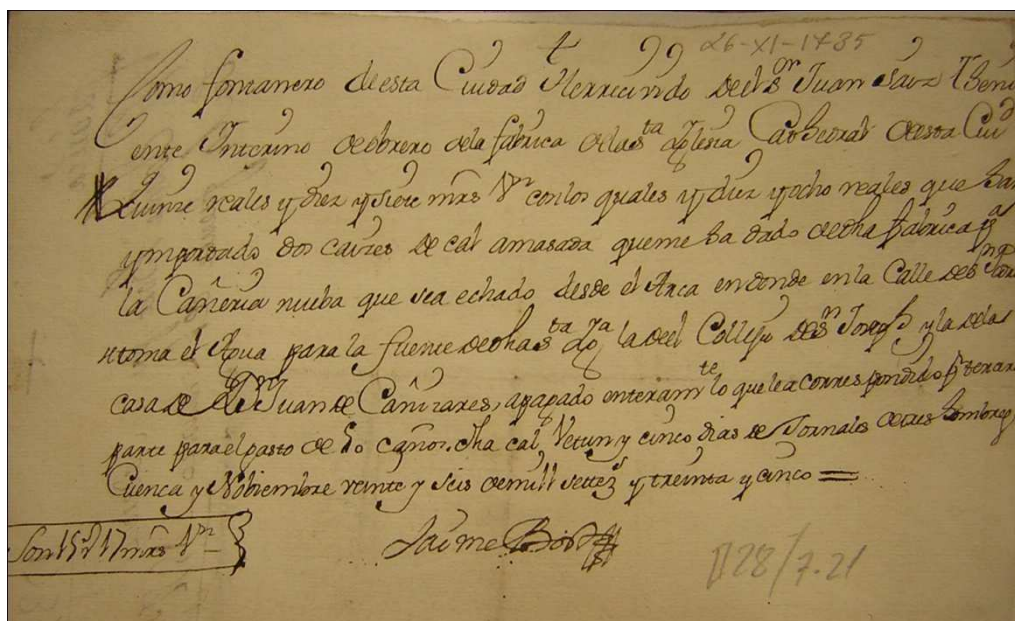 26-XI-1735
Como fontanero de esta Ciudad He rrecivido del Sr. Dn Juan Theni
ente Interino de obrero de la fabrica de la sta Yglesia Cathedral de esta Ciud
Quinze reales y diez y siete mrs Vn con los quales y diez y ocho reales que han
ymportado dos caizes de cal amasada que me ha dado dha fabrica pa
la Cañeria nueba que sea echado desde el Arca en donde en la Calle de Sn
se toma el Agua para la fuente de dha sta Yga la del Collejio de Sn Joseph y la de la
casa de Dn Juan de Cañizares, a pagado enteramte lo que le a correspondido por terzera
parte para el gasto de 50 caños, dha cal, Vetun y cinco dias de Jornales de tres hombres
Cuenca y Nobiembre veinte y seis de mill settezs y treinta y cinco =
Son 15 rs 17 mrs Vn
Jaime Bort
128/7.21